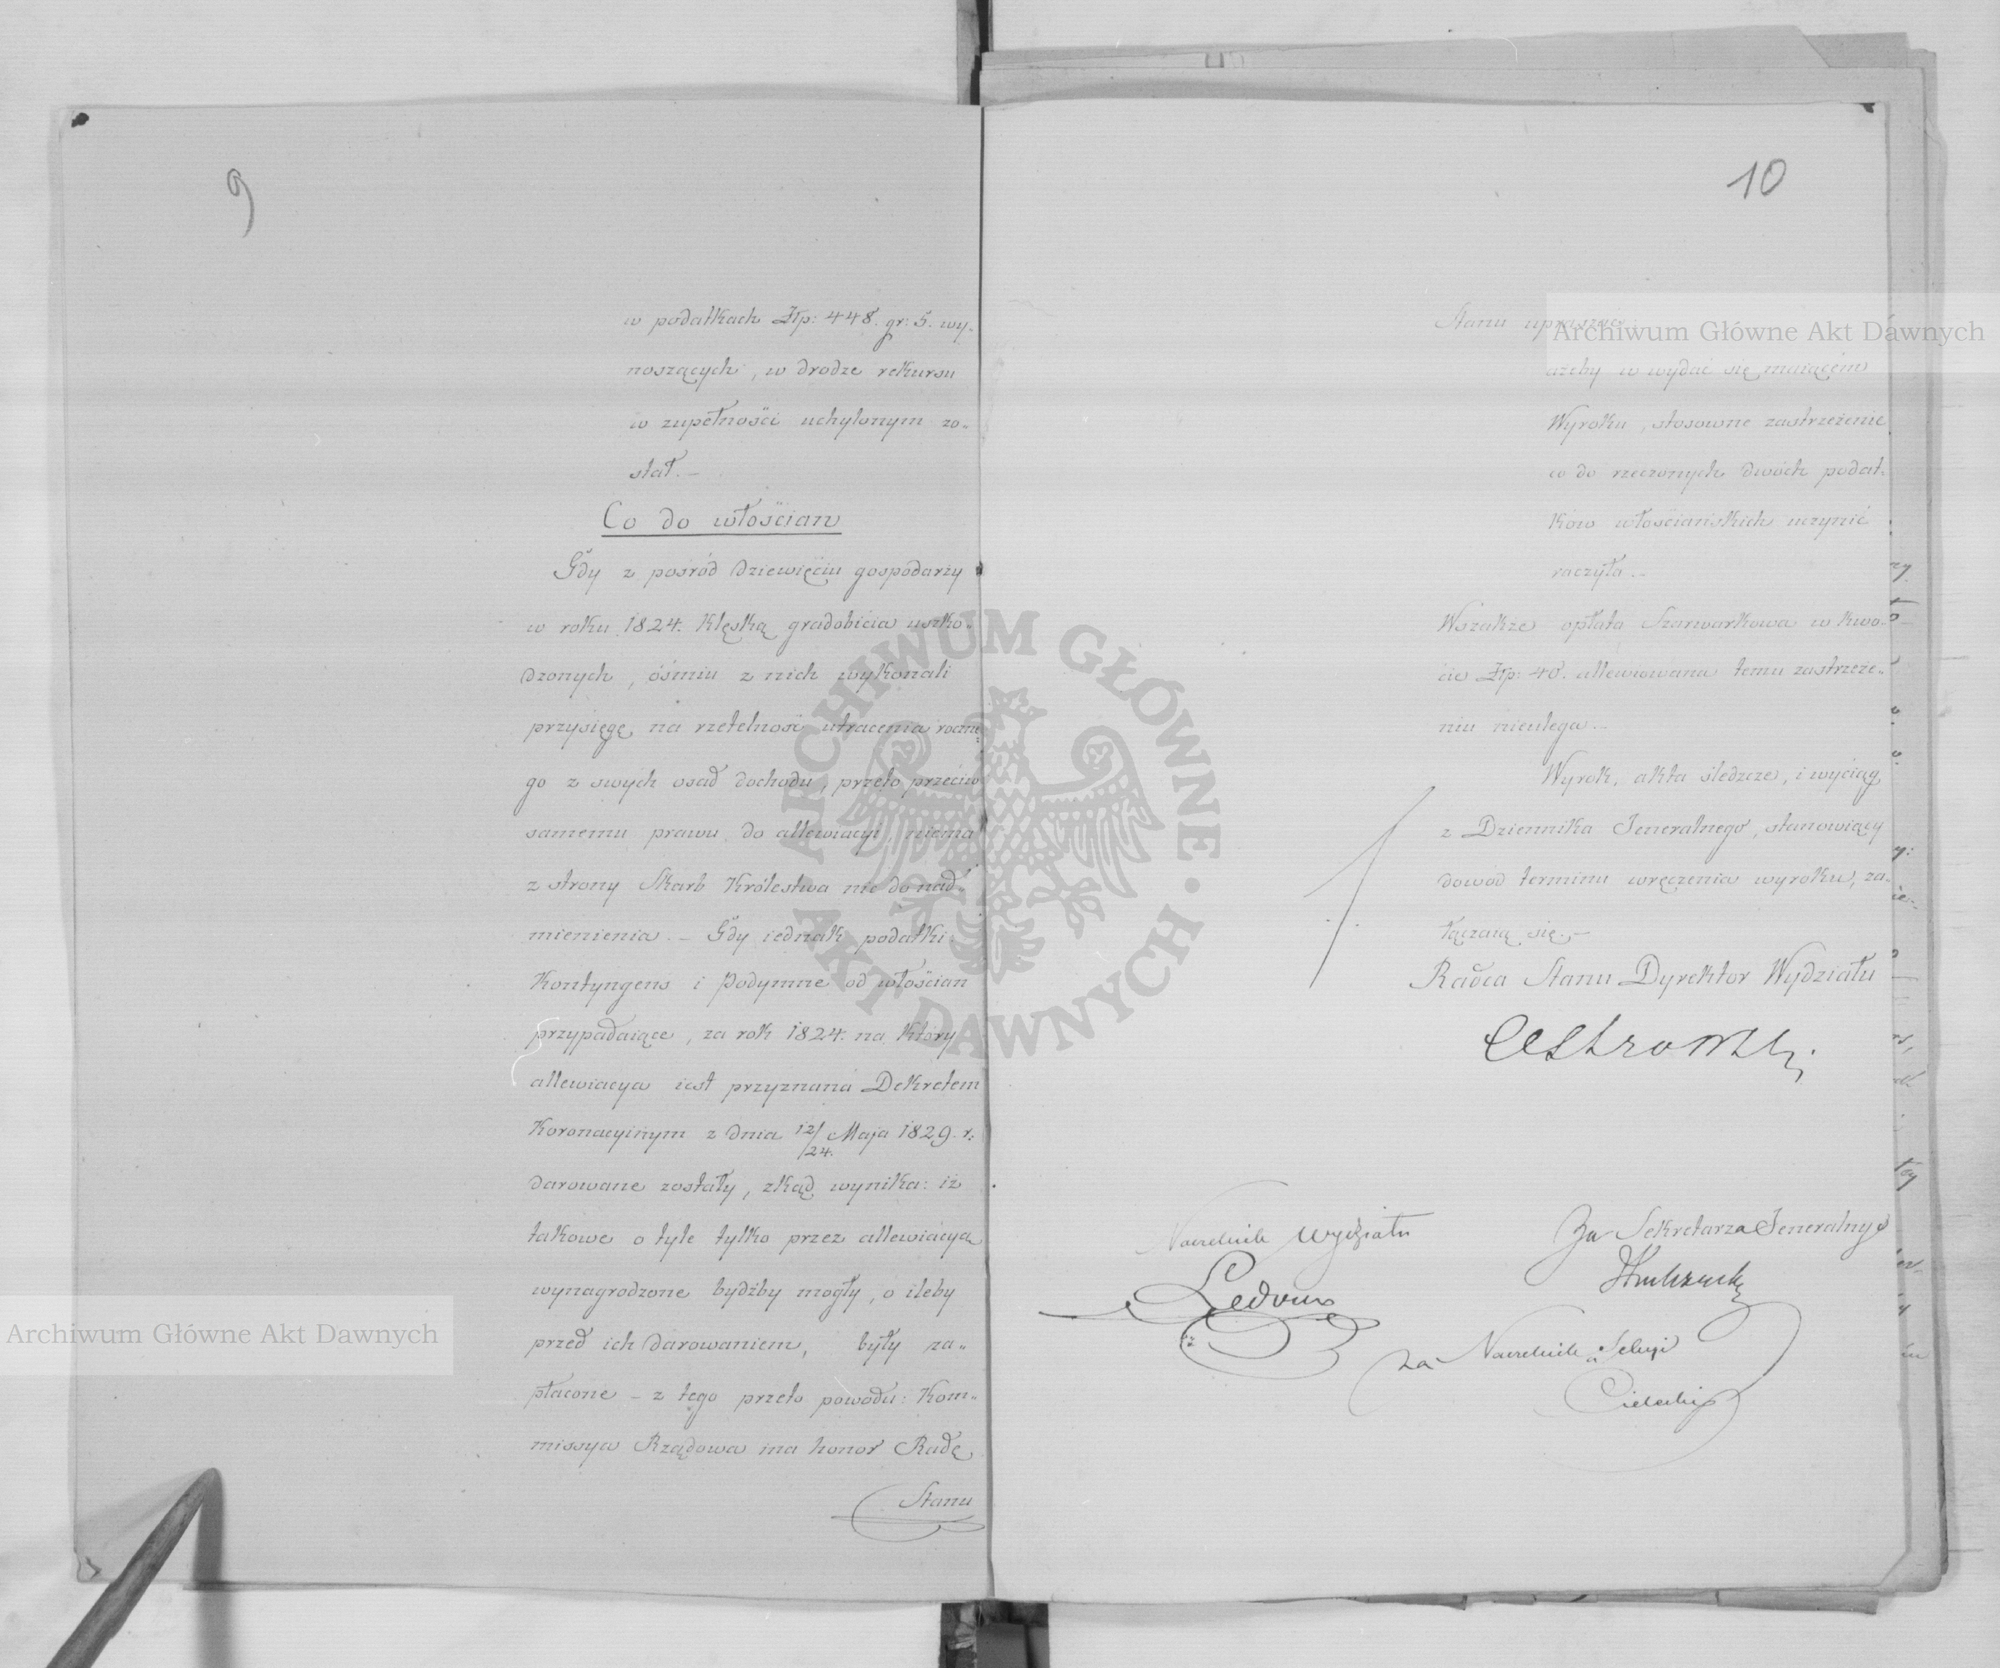 9
w podatkach Złp: 448. gr: 5. wy-
noszących, w drodze rekursu
w zupełności uchylonym zo-
stał. –
Co do włościan
Gdy z pośród dziewięciu gospodarzy
w roku 1824. klęską gradobicia uszko-
dzonych, ośmiu z nich wykonali
przysięgę na rzetelność utracenia roczne-
go z swych osad dochodu, przeto przeciw
samemu prawu do allewiacyi niema
z strony Skarb Królestwa nic do nad-
mienienia. – Gdy iednak podatki
Kontyngens i Podymne od włościan
przypadaiące, za rok 1824. na który
allewiacya iest przyznaną Dekretem
Koronacyinym z dnia 12/24. Maja 1829. r:
darowane zostały, zkąd wynika: iż
takowe o tyle tylko przez allewiacyą
wynagrodzone bydźby mogły, o ileby
przed ich darowaniem, były za-
płacone – z tego przeto powodu: Kom-
missya Rządowa ma honor Radę
Stanu
10
Stanu upraszać
ażeby w wydać się maiącém
Wyroku, stosowne zastrzeżenie
co do rzeczonych dwóch podat-
ków włościańskich uczynić
raczyła. –
Wszakże opłata Szarwarkowa w kwo-
cie Złp: 40. allewiowana temu zastrzeże-
niu nieulega –
Wyrok, akta śledzcze, i wyciąg
z Dziennika Jeneralnego, stanowiący
dowód terminu wręczenia wyroku, za-
łączaią się. –
Radca Stanu Dyrektor Wydziału
Naczelnik Wydziału
Za Sekretarza Jeneralnego
za Naczelnika Sekcyi
Archiwum Główne Akt Dawnych
Archiwum Główne Akt Dawnych
ARCHIWUM GŁÓWNE • AKT DAWNYCH •